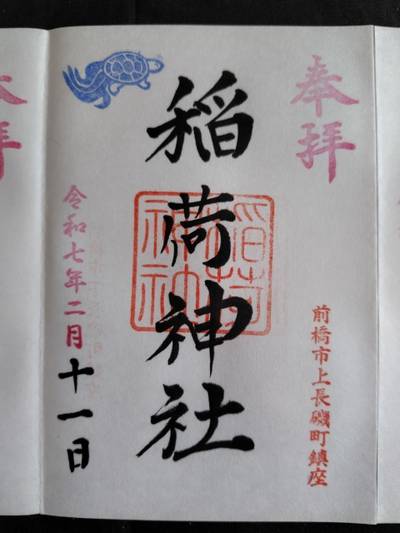 奉拝
稲荷神社
前橋市上長磯町鎮座
令和七年二月十一日